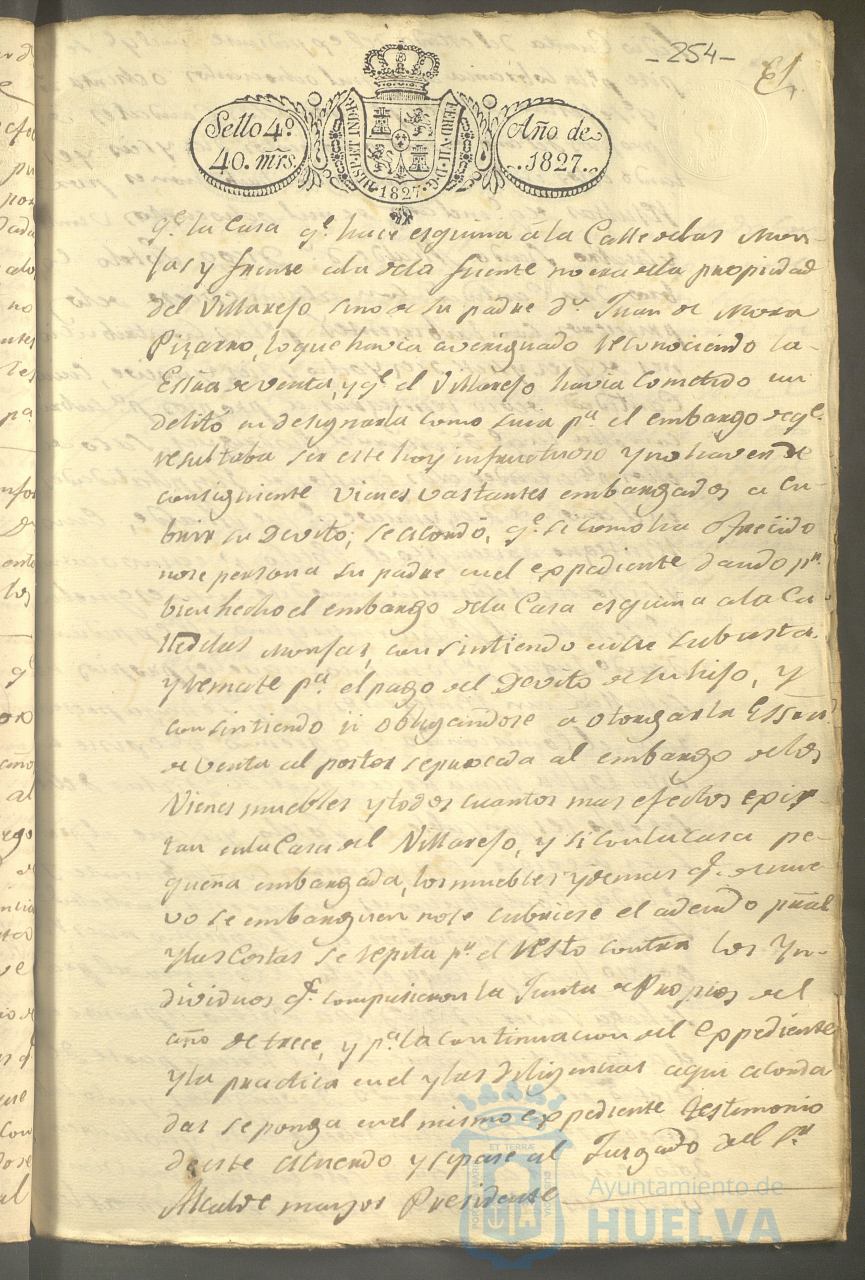 -254-
51
Sello 4º
40. mrs.
HISP. ET IND. R.
FERD. VII. D. G.
·1827·
Año de
1827.
qᵉ la Casa qᵉ hace esquina á la Calle delas Mon-
jas y frente ala dela fuente no era dela propiedad
del Villarejo sino de su padre Dⁿ Juan de Mora
Pizarro, loque havia averiguado reconociendo la
Essrã de venta, y qᵉ el Villarejo havia cometido un
delito en designarla como suia pª el embargo deqᵉ
resultaba ser este hoy infructuoso y no haver de
consiguiente vienes vastantes embargados a cu-
brir su Devito; se acordó, qᵉ si como ha ofrecido
no se persona su padre en el expediente dando pʳ
bien hecho el embargo dela Casa esquina ala Ca-
lle delas Monjas, consintiendo en su subasta
y remate pª el pago del Devito de su hijo, y
consintiendo ú obligandose á otorgar la Essrã
de venta al postor se proceda al embargo delos
Vienes muebles y todos cuantos mas efectos exis-
tan en la Casa del Villarejo, y si con la casa pe-
queña embargada, los muebles y demas qᵉ de nue-
vo se embarguen no se cubriese el adeudo pral
y las Costas se repita pʳ el resto contra los Yn-
dividuos qᵉ compusieron la Junta de Propios del
año de trece, y pª la continuacion del expediente
y la practica en el y las diligencias aqui acorda
das se ponga en el mismo expediente Testimonio
de este acuerdo y se pase al Juzgado del Sʳ
Alcalde mayor Presidente
Ayuntamiento de
HUELVA